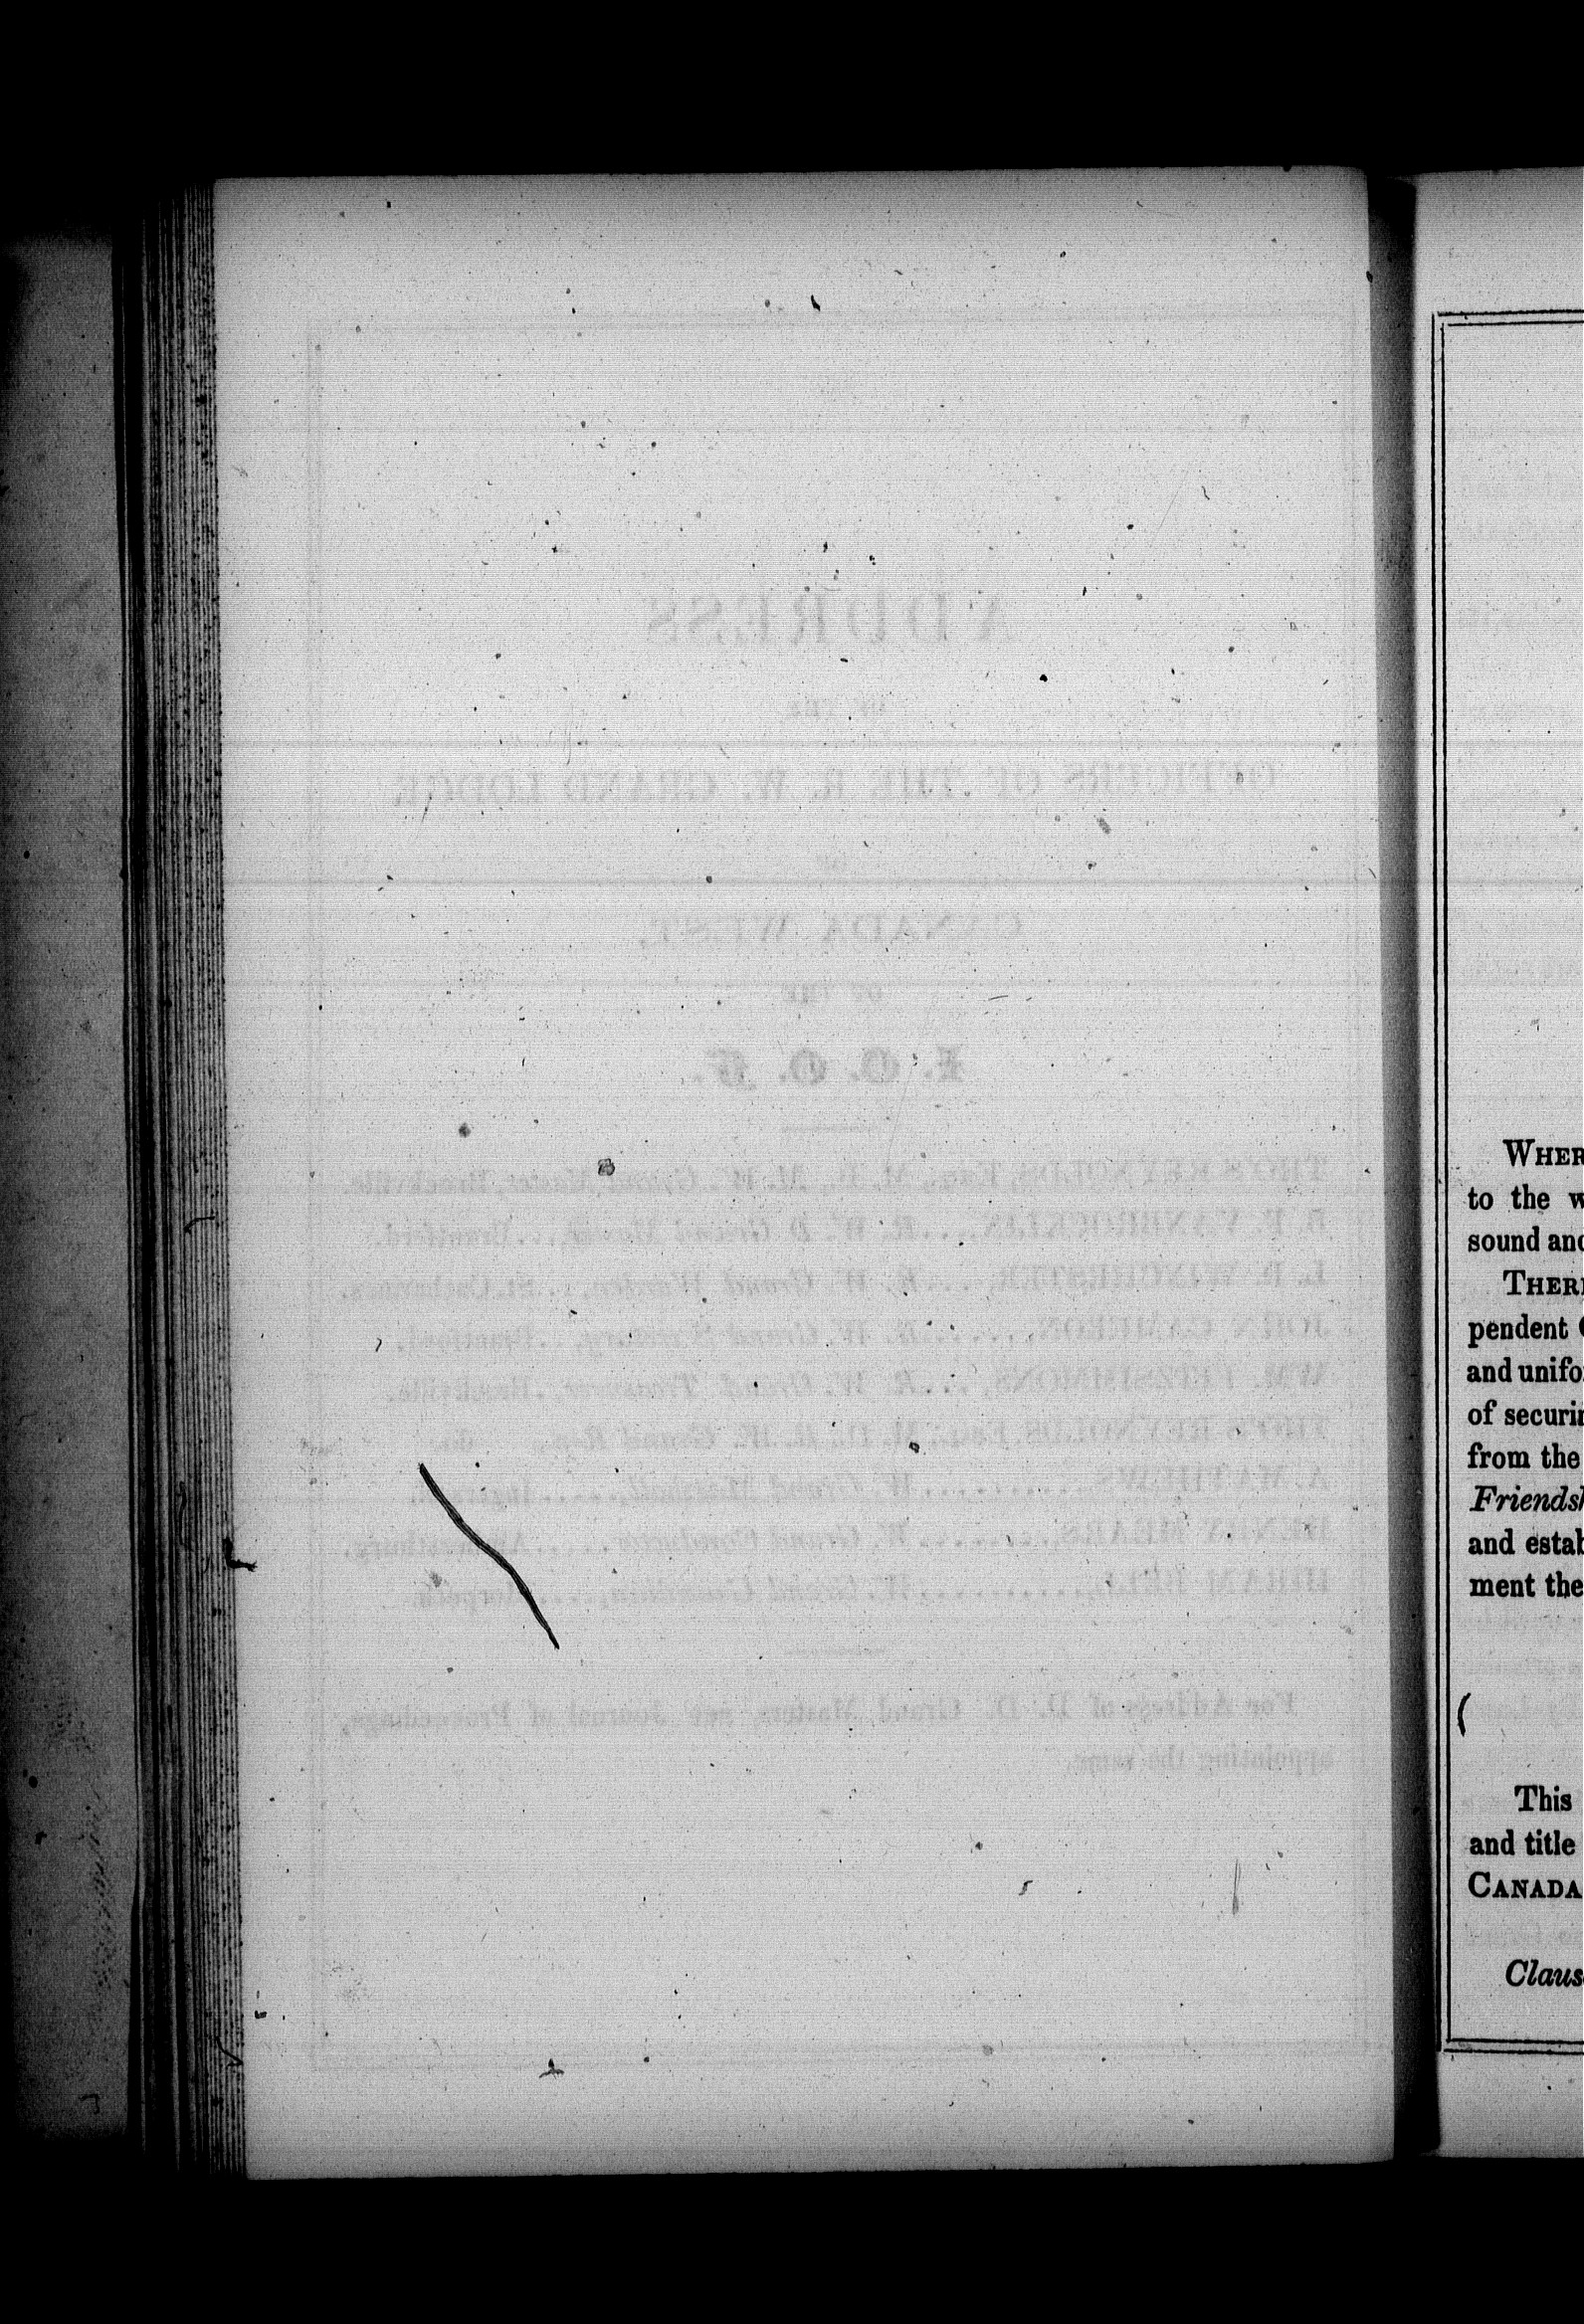 ADDRESS
OF THE
OFFICERS OF THE R. W. GRAND LODGE
OF
CANADA WEST,
OF THE
I. O. O. F.
THO'S REYNOLDS, Esq., M. D. M. W. Grand Master, Brockville.
VANBROCKLIN, ... R. W. D Grand Master, ... Brantford.
WINCHESTER, .... R. W. Grand Warden, ... St. Catharines.
JOHN CAMERON, ...... R. W. Grand Secretary, ... Brantford.
WM. FITZSIMMONS, .... R. W. Grand Treasurer, .. Brockville.
THO'S REYNOLDS, Esq., M. D., R. W. Grand Rep., do.
A. MATTHEWS .......... W. Grand Marshall, ..... Ingersoll.
HENRY MEARS, ....... W. Grand Conductor ..... Amherstburg.
HIRAM BELL, .......... W. Grand Guardian, .... Morpeth.
For Address of D. D. Grand Masters, see Journal of Proceedings,
appointing the same.
WHER
to the w
sound and
THER
pendent
and unifo
of securin
from the
Friendsh
and estab
ment the
(
This
and title
CANADA
Claus